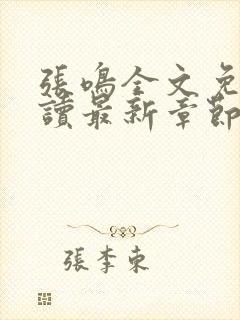 張鳴全文免
讀最新章節
張李東